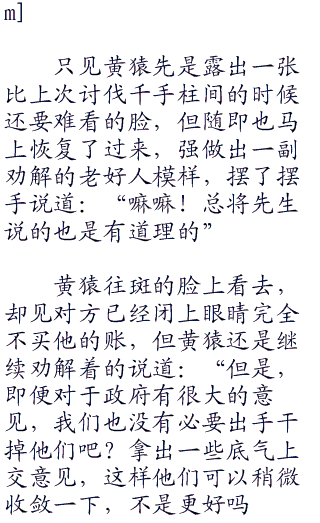 m]
只见黄猿先是露出一张
比上次讨伐千手柱间的时候
还要难看的脸，但随即也马
上恢复了过来，强做出一副
劝解的老好人模样，摆了摆
手说道：“嘛嘛！总将先生
说的也是有道理的”
黄猿往斑的脸上看去，
却见对方已经闭上眼睛完全
不买他的账，但黄猿还是继
续劝解着的说道：“但是，
即便对于政府有很大的意
见，我们也没有必要出手干
掉他们吧？拿出一些底气上
交意见，这样他们可以稍微
收敛一下，不是更好吗